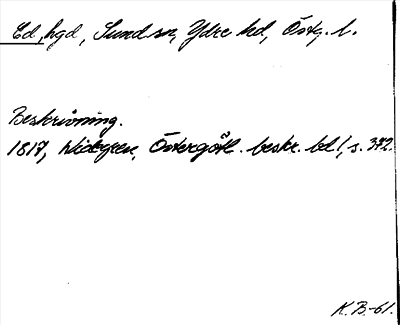 Ed, hgd, Sund sn, Ydre hd, Östg. l.
Beskrivning.
1817, Widegren, Östergötl. beskr. bd 1, s. 372.
K.B.-61.